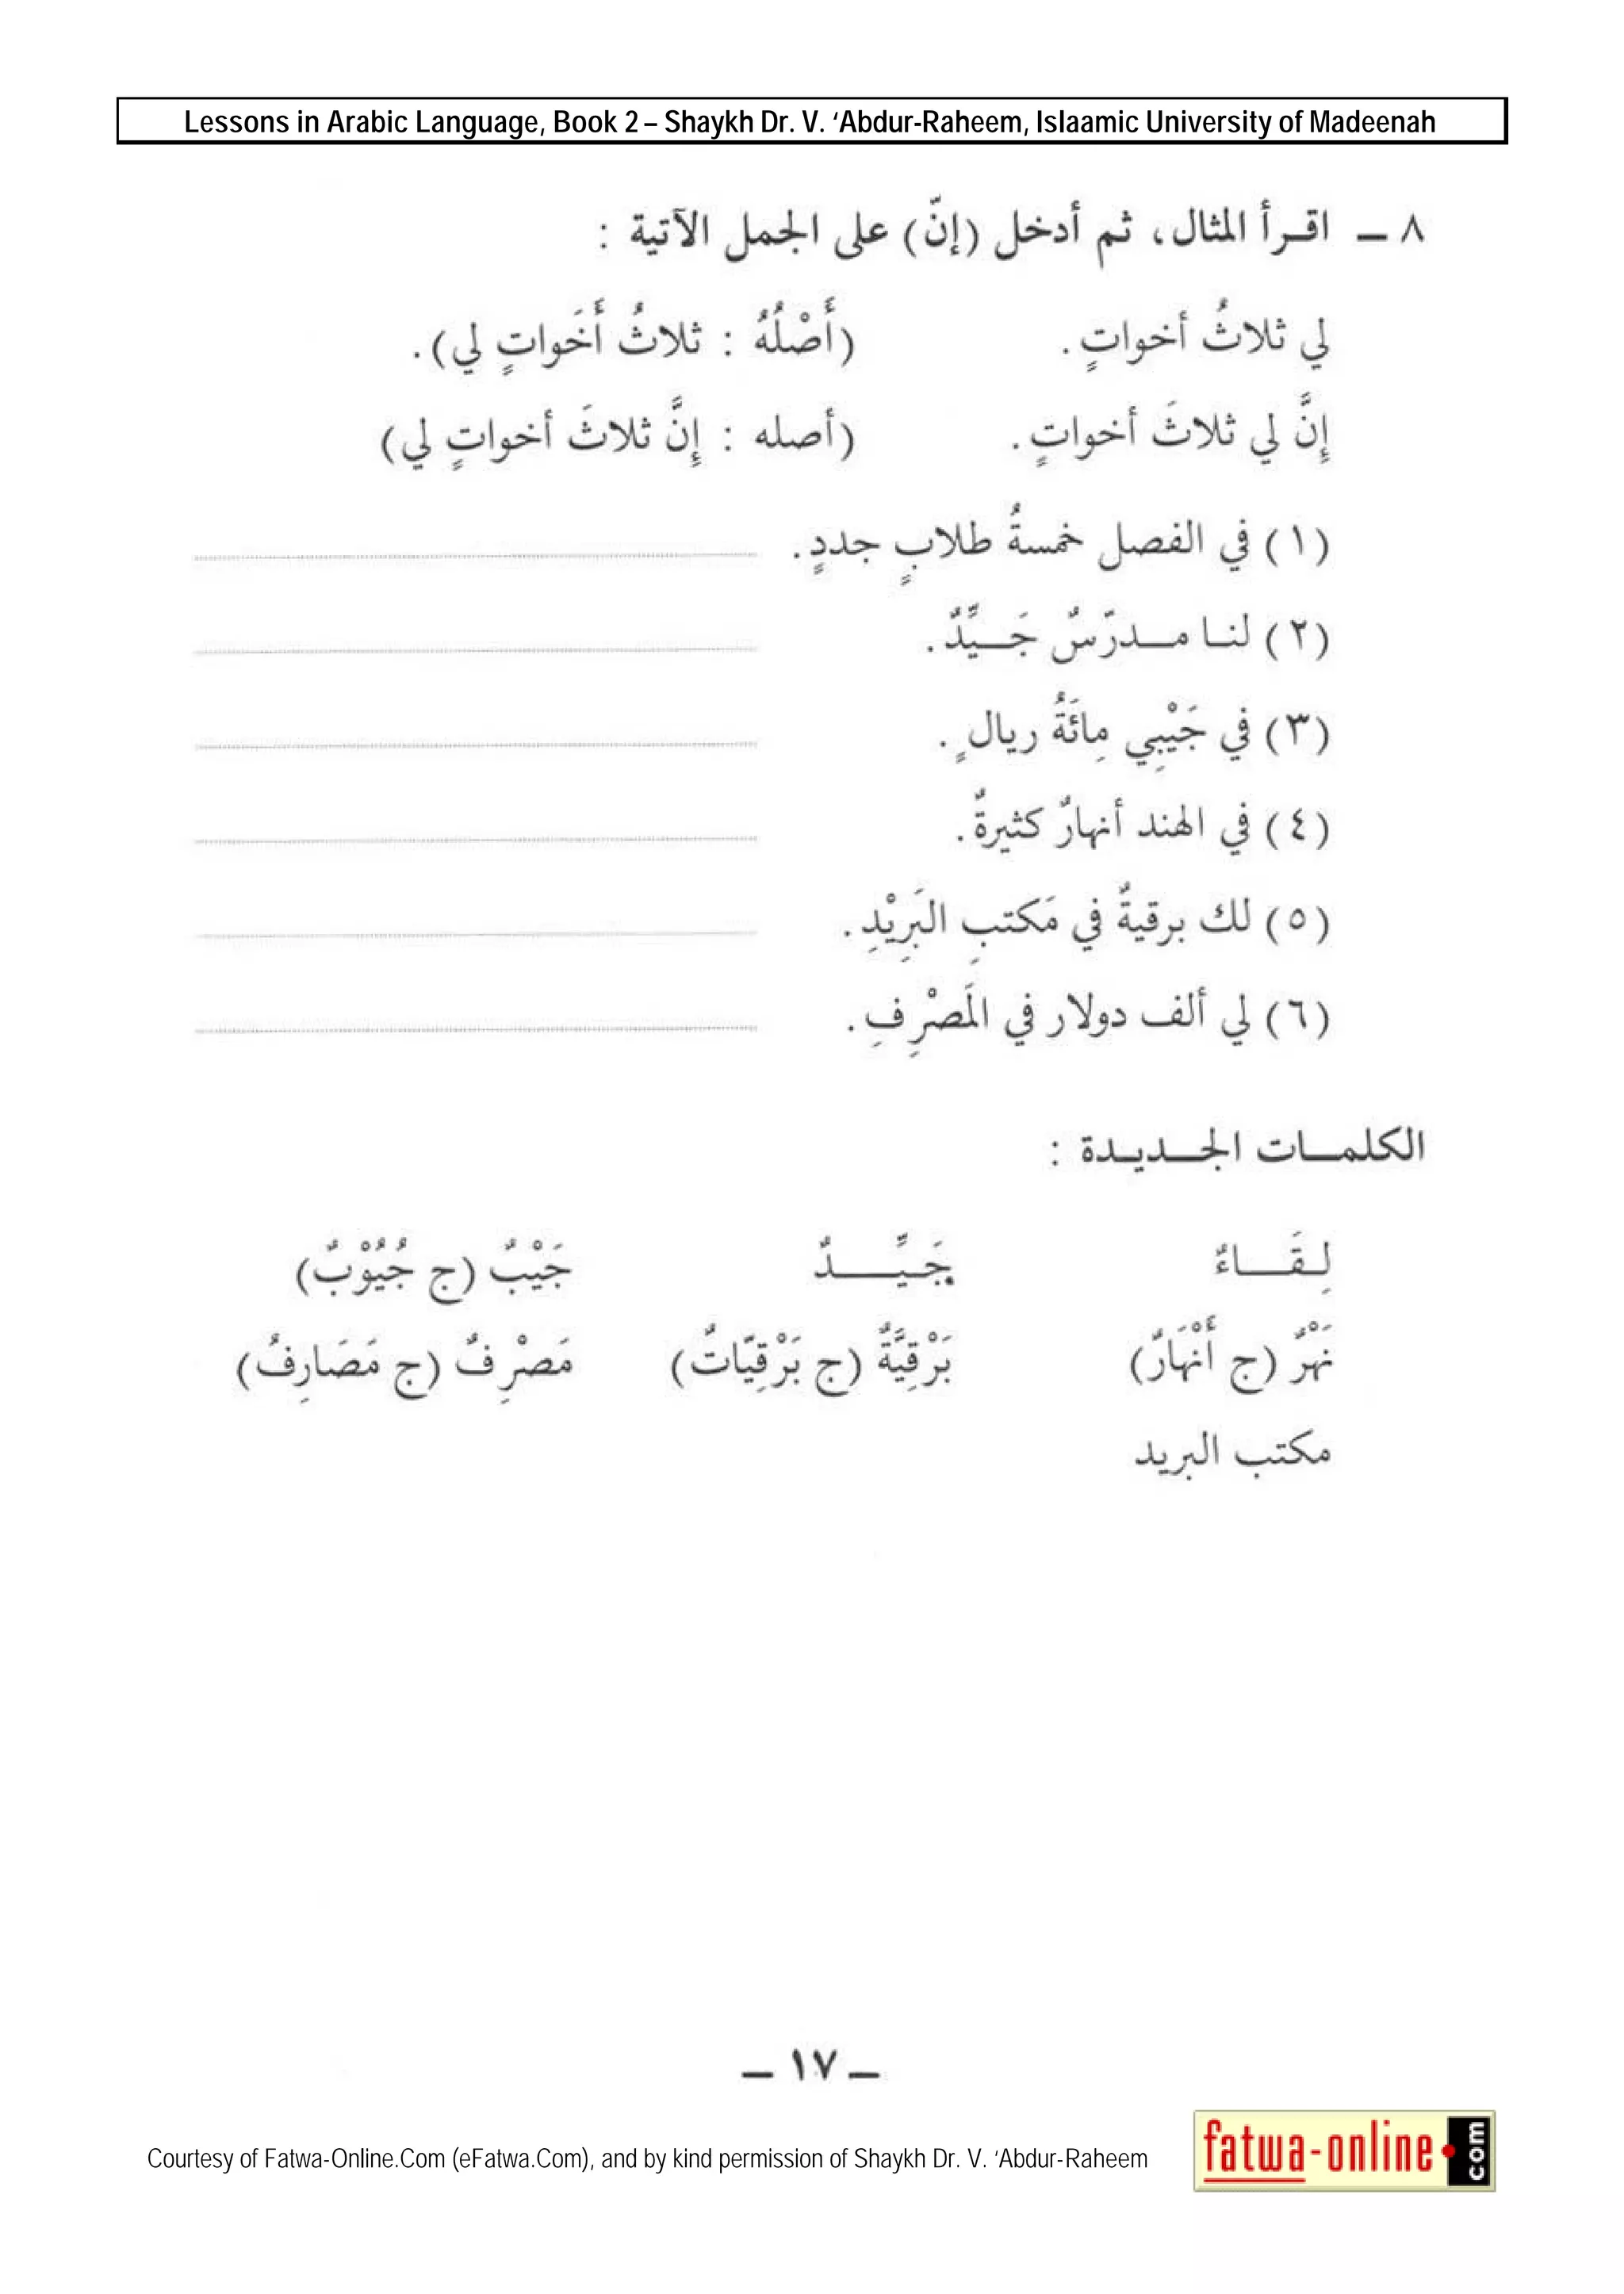 Lessons in Arabic Language, Book 2 – Shaykh Dr. V. ‘Abdur-Raheem, Islaamic University of Madeenah
٨ – اقـرأ المثال، ثم أدخل (إنّ) على الجمل الآتية :
لي ثلاثُ أخواتٍ. (أَصْلُهُ : ثلاثُ أَخَواتٍ لي).
إِنَّ لي ثلاثَ أخواتٍ. (أصله : إِنَّ ثلاثَ أخواتٍ لي)
(١) في الفصل خمسةُ طلابٍ جددٍ.
(٢) لنـا مـــدرّسٌ جَـــيِّدٌ.
(٣) في جَيْبِي مِائَةُ ريالٍ.
(٤) في الهند أنهارٌ كثيرةٌ.
(٥) لك برقيةٌ في مَكتبِ البَرِيْدِ.
(٦) لي ألف دولار في المَصْرِفِ.
الكلمـــات الجــــديـدة :
لِـقَـــاءٌ جَـيِّـــــدٌ جَيْبٌ (ج جُيُوْبٌ)
نَهْرٌ (ج أَنْهَارٌ) بَرْقِيَّةٌ (ج بَرْقِيّاتٌ) مَصْرِفٌ (ج مَصَارِفُ)
مكتب البريد
– ١٧ –
Courtesy of Fatwa-Online.Com (eFatwa.Com), and by kind permission of Shaykh Dr. V. ‘Abdur-Raheem
fatwa-online.com